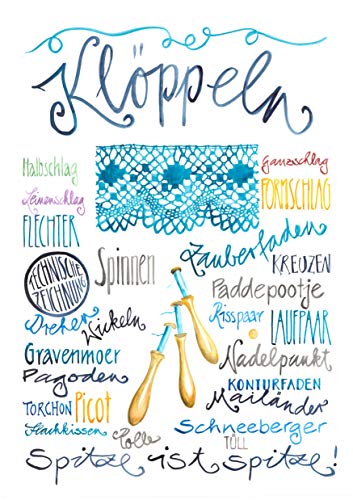 Klöppeln
Halbschlag
Ganzschlag
Leinenschlag
FORMSCHLAG
FLECHTER
Zauberfaden
TECHNISCHE ZEICHNUNG
Spinnen
KREUZEN
Paddepootje
Drehen
Wickeln
Risspaar
LAUFPAAR
Gravenmoer
Nadelpunkt
Pagoden
KONTURFADEN
Mailänder
TORCHON
Picot
Schneeberger
Flachkissen
Rolle
TÜLL
Spitze ist spitze!